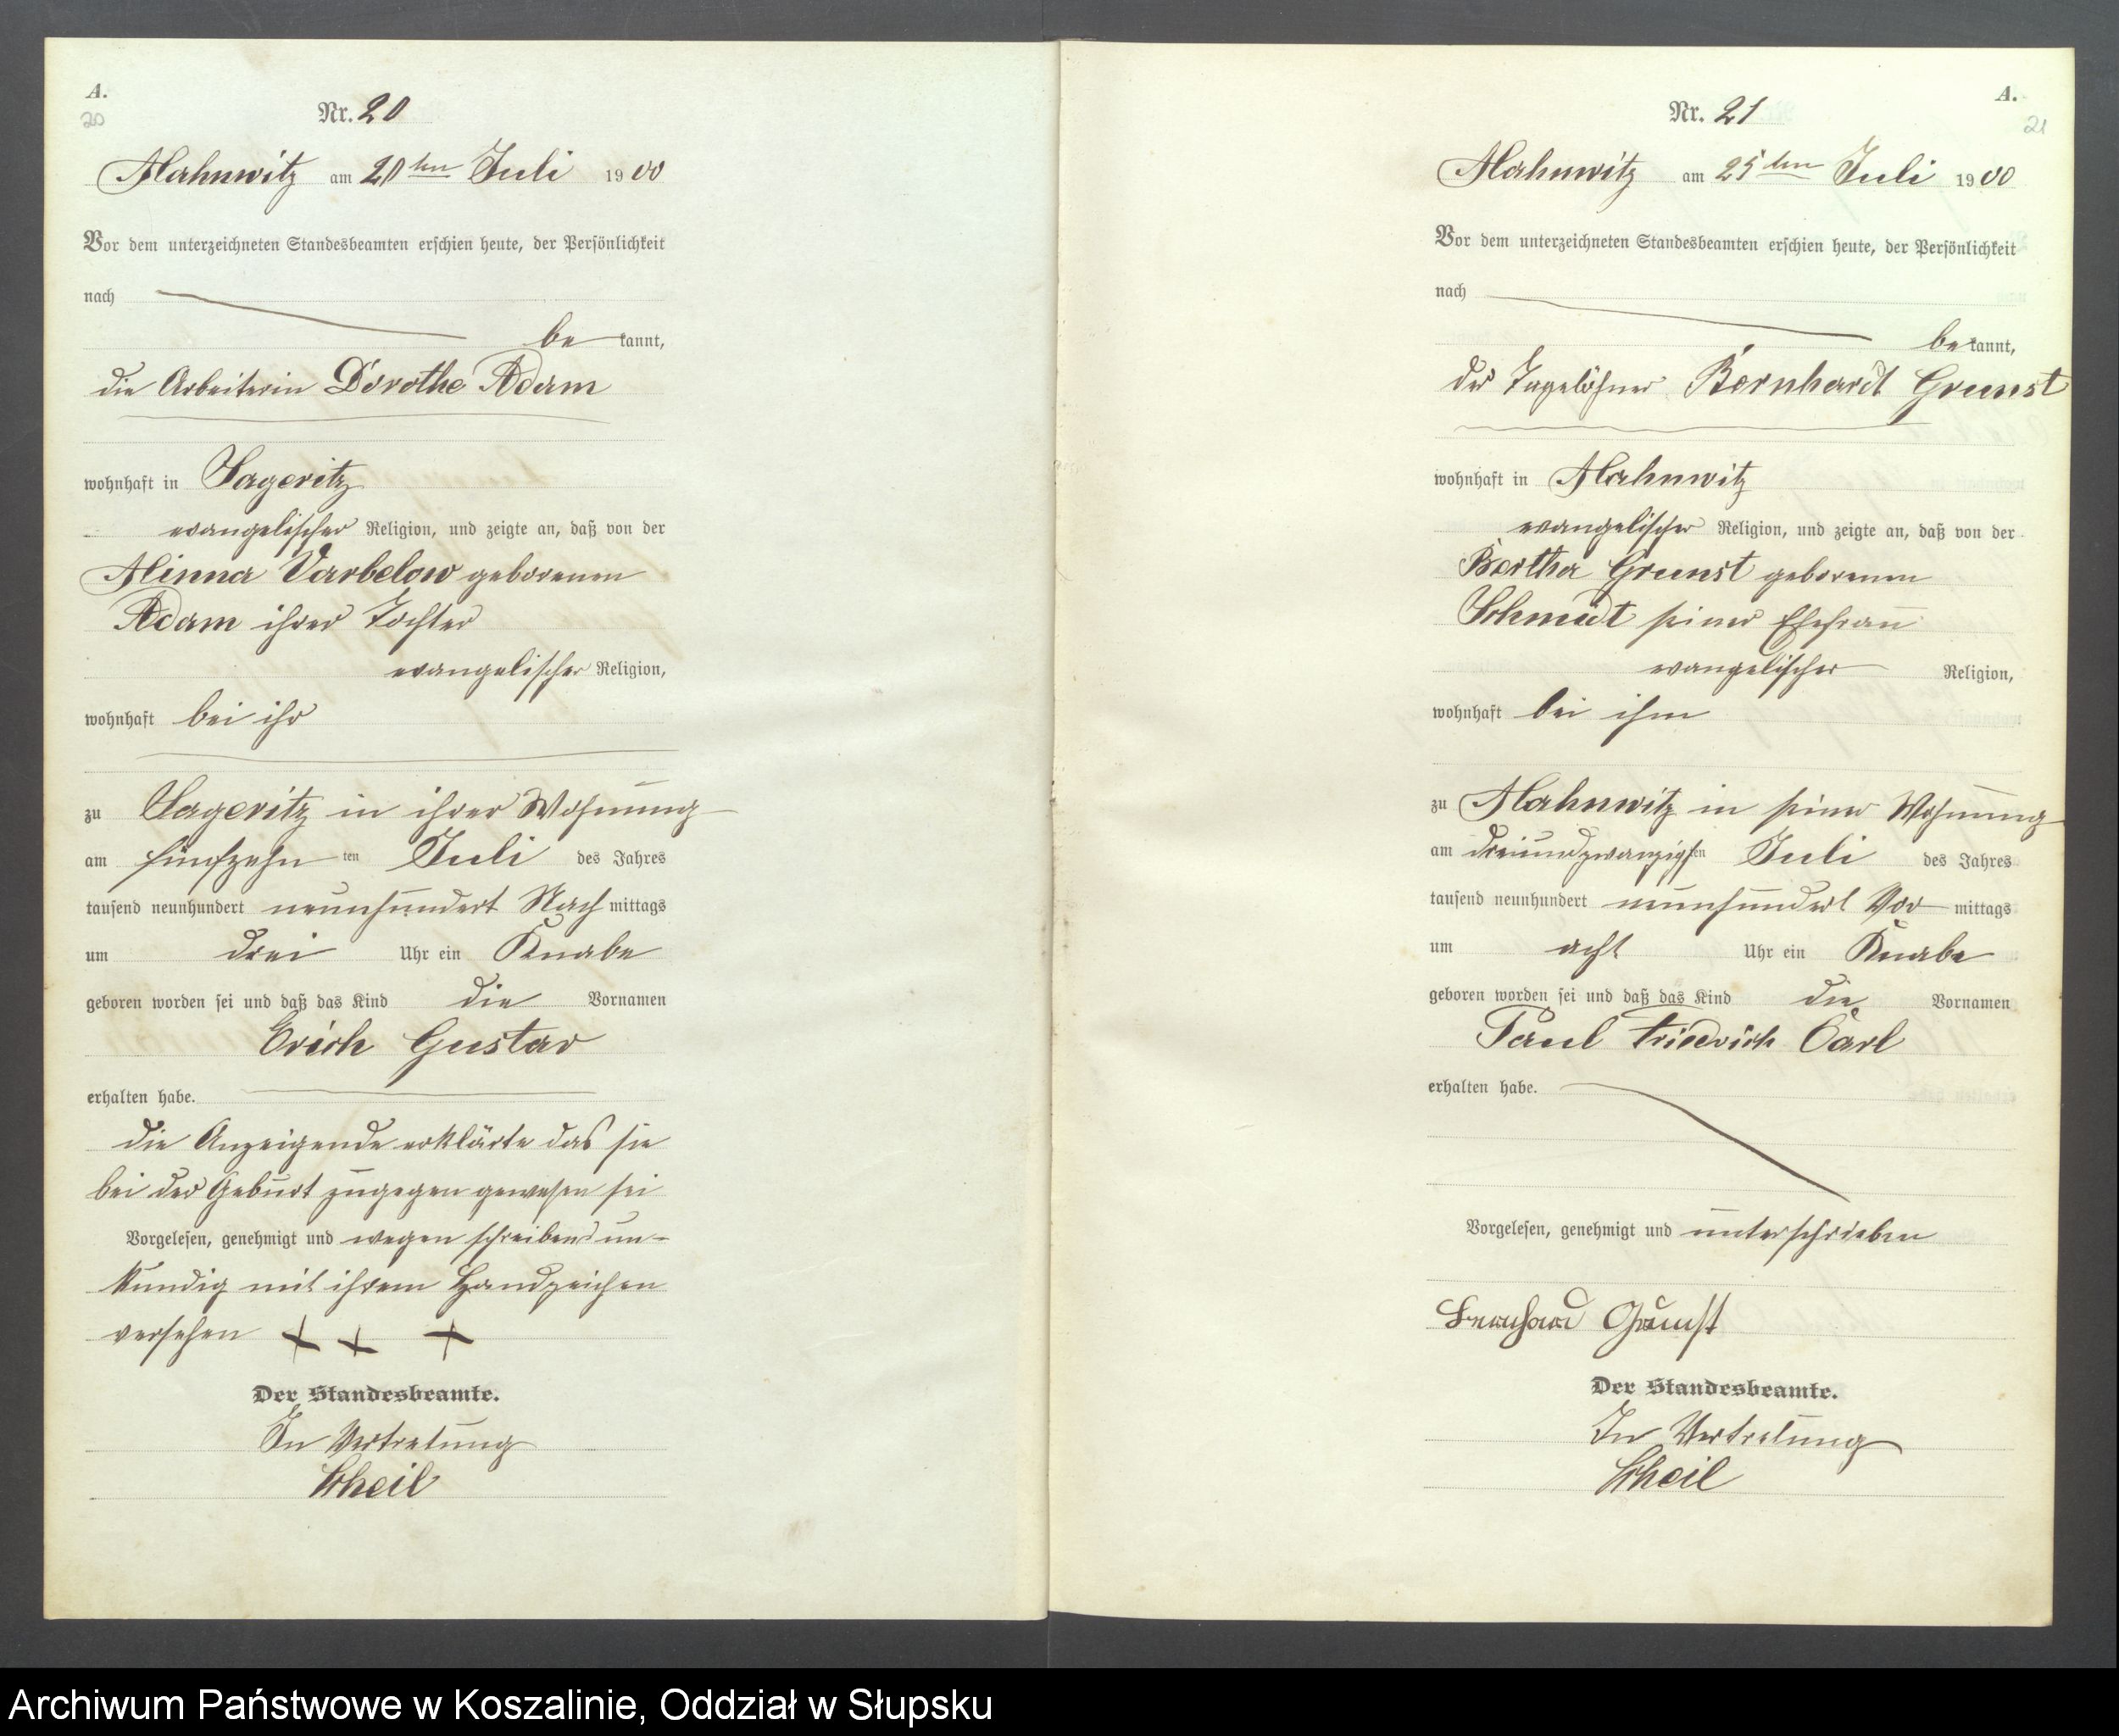 A.
20
Nr. 20
Mahnwitz am 20ten Juli 1900
Vor dem unterzeichneten Standesbeamten erschien heute, der Persönlichkeit
nach
be kannt,
die Arbeiterin Dorothe Adam
wohnhaft in Sageritz
evangelischer Religion, und zeigte an, daß von der
Minna Varbelow geborenen
Adam ihrer Tochter
evangelischer Religion,
wohnhaft bei ihr
zu Sageritz in ihrer Wohnung
am fünfzehn ten Juli des Jahres
tausend neunhundert neunhundert Nach mittags
um drei Uhr ein Knabe
geboren worden sei und daß das Kind die Vornamen
Erich Gustav
erhalten habe.
die Anzeigende erklärte das sie
bei der Geburt zugegen gewesen sei
Vorgelesen, genehmigt und wegen schreibens un-
kundig mit ihrem Handzeichen
versehen + + +
Der Standesbeamte.
In Vertretung
Scheil
A.
21
Nr. 21
Mahnwitz am 25ten Juli 1900
Vor dem unterzeichneten Standesbeamten erschien heute, der Persönlichkeit
nach
be kannt,
der Tagelöhner Bernhardt Grunst
wohnhaft in Mahnwitz
evangelischer Religion, und zeigte an, daß von der
Bertha Grunst geborenen
Schmidt seiner Ehefrau
evangelischer Religion,
wohnhaft bei ihm
zu Mahnwitz in seiner Wohnung
am dreiundzwanzigsten Juli des Jahres
tausend neunhundert neunhundert Vor mittags
um acht Uhr ein Knabe
geboren worden sei und daß das Kind die Vornamen
Paul Friedrich Carl
erhalten habe.
Vorgelesen, genehmigt und unterschrieben
Bernhard Grunst
Der Standesbeamte.
In Vertretung
Scheil
Archiwum Państwowe w Koszalinie, Oddział w Słupsku